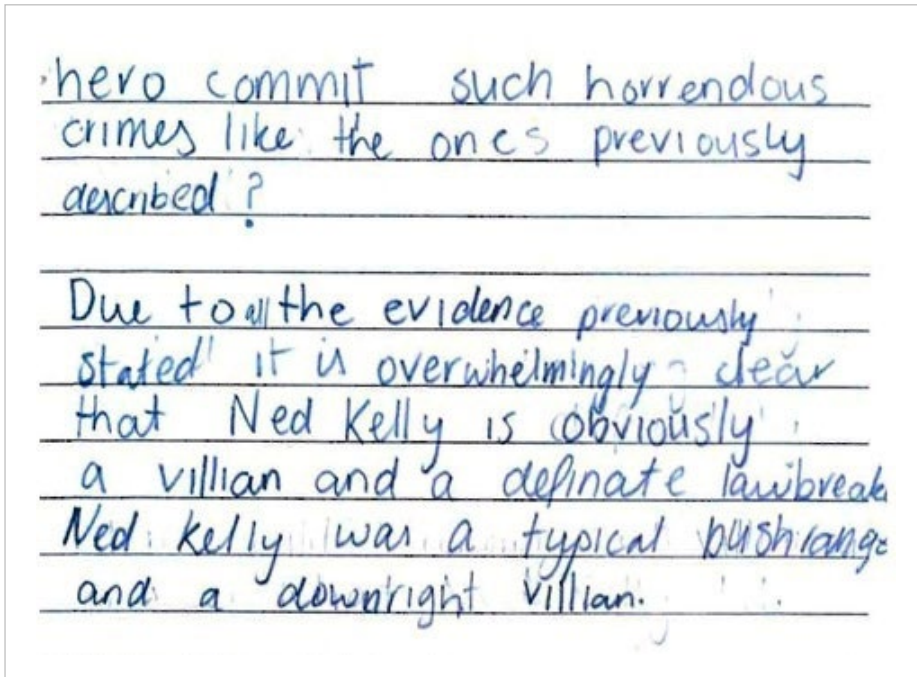 hero commit such horrendous
crimes like the ones previously
described?
Due to all the evidence previously
stated it is overwhelmingly clear
that Ned Kelly is obviously
a villian and a definate lawbreake
Ned Kelly was a typical bushrange
and a downright villian.